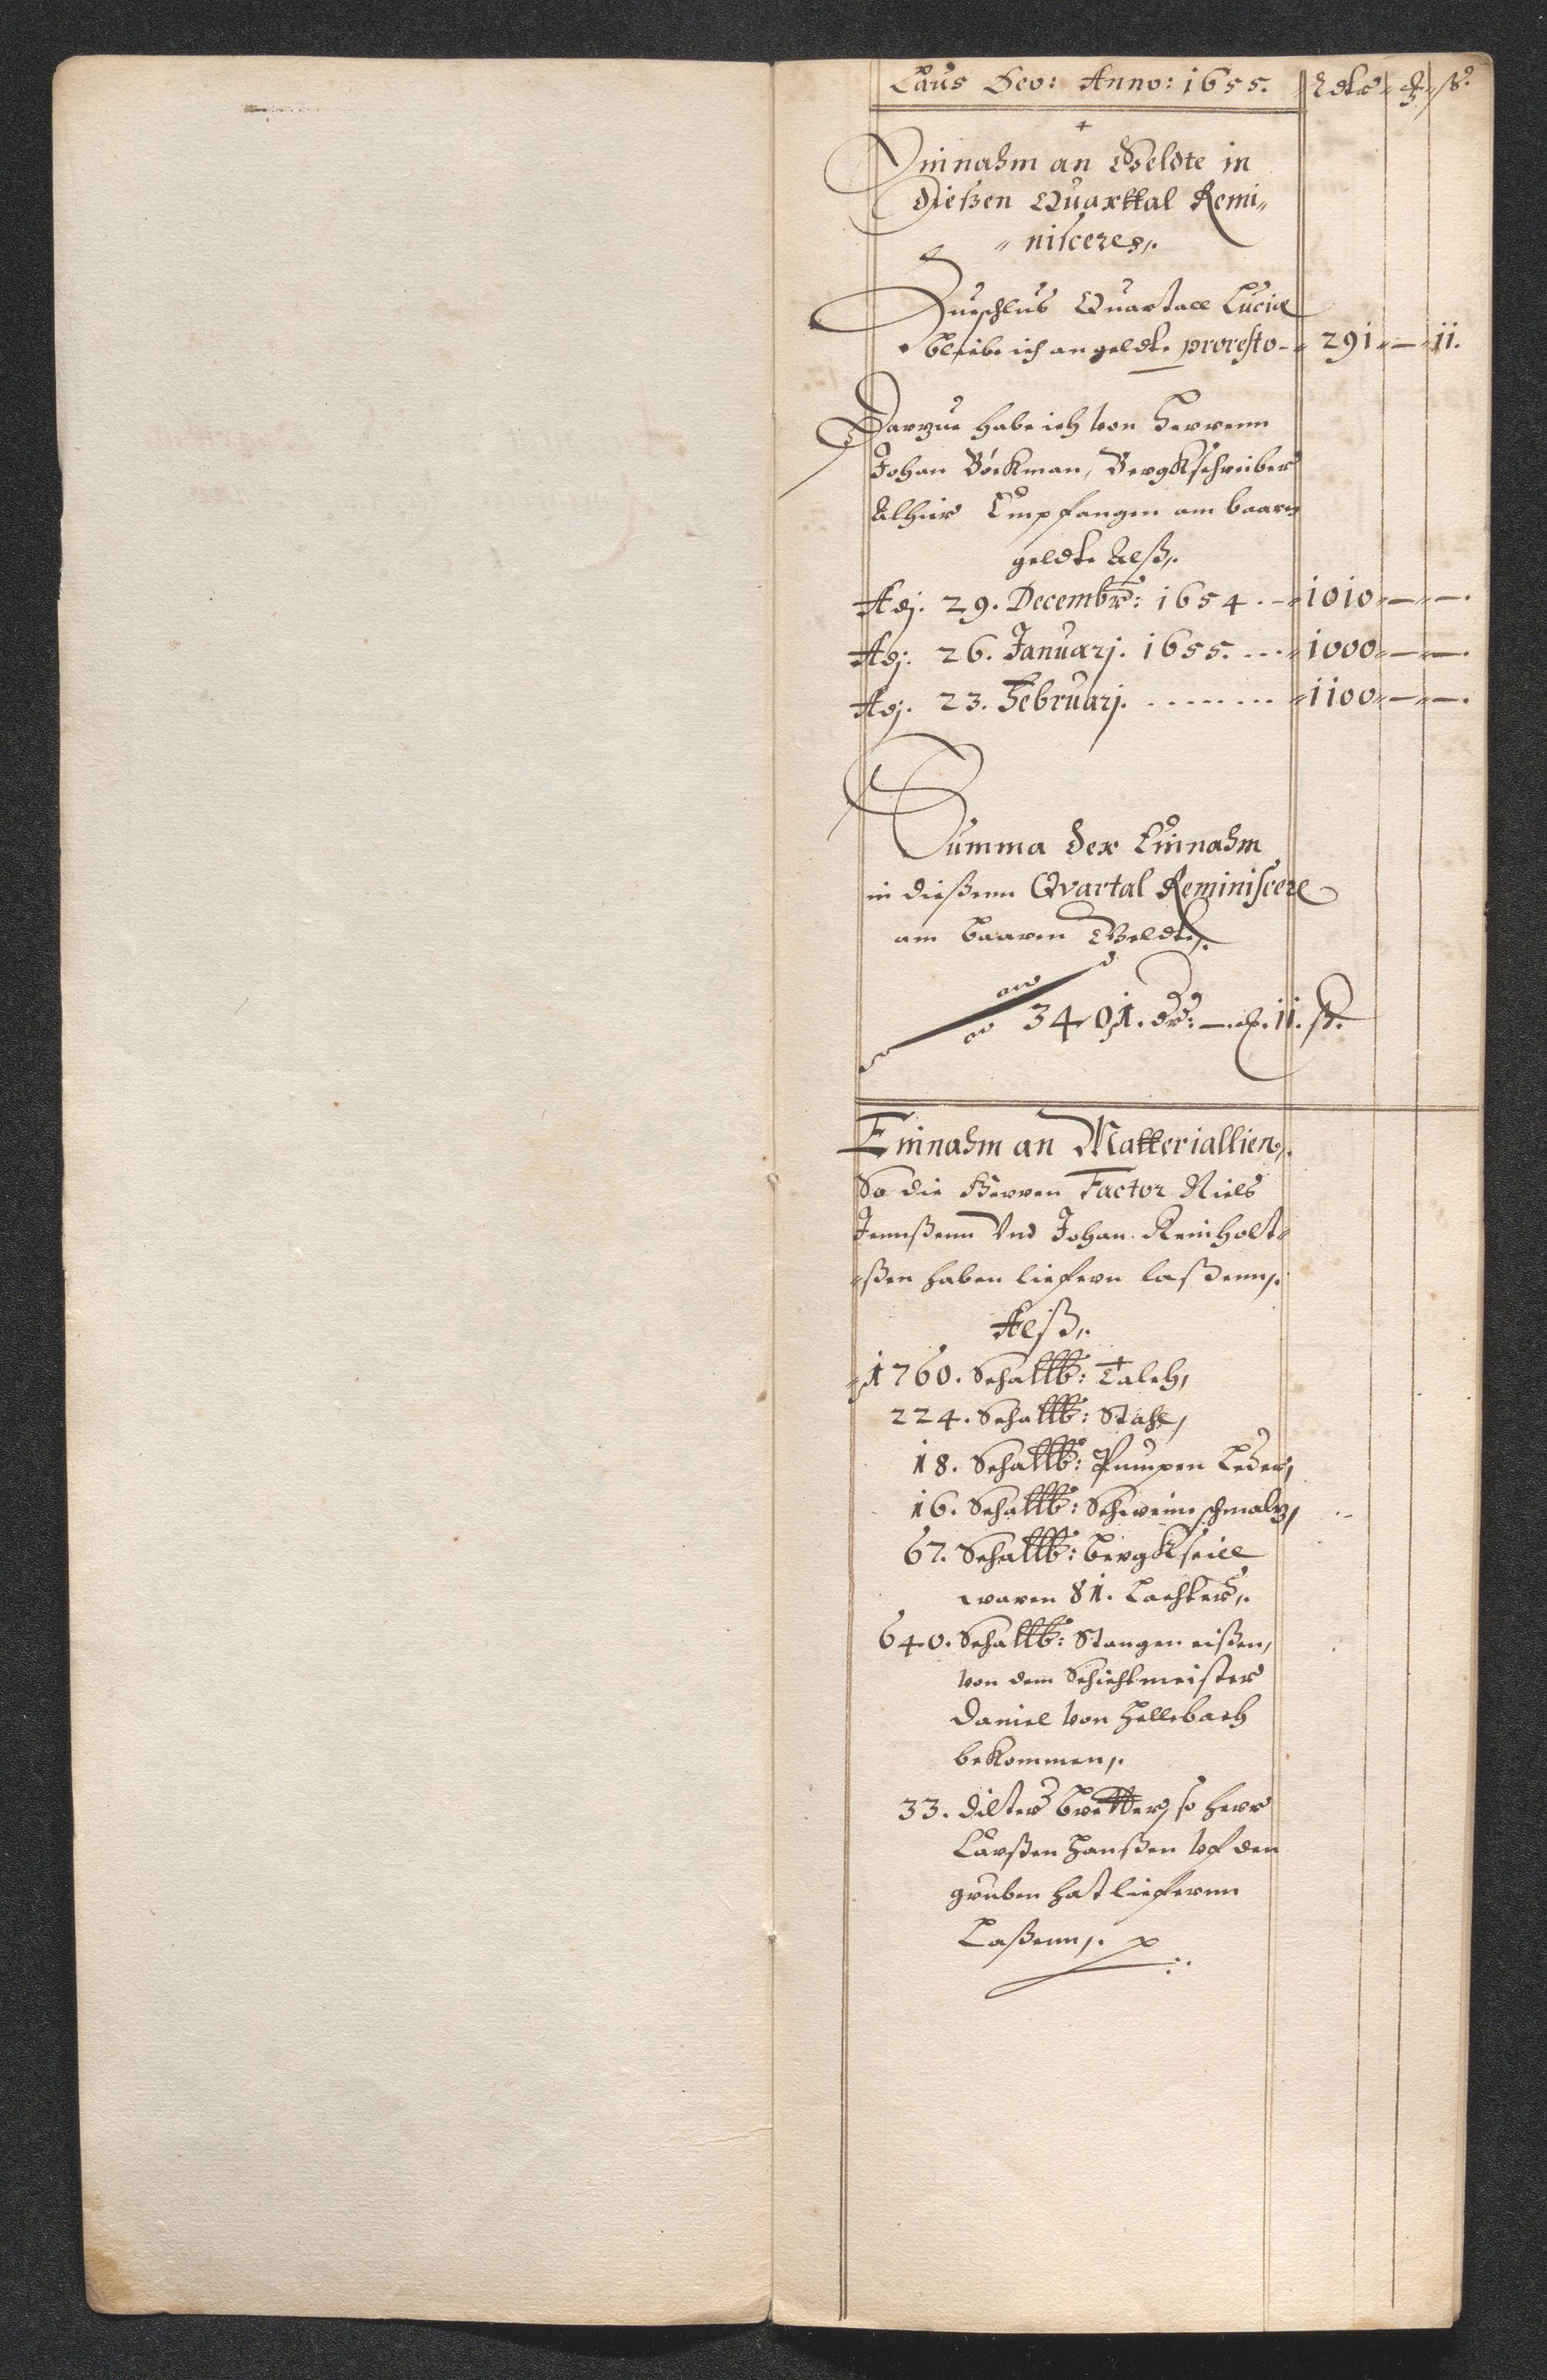 Laus Deo: Anno: 1655. Rdlr ß.
Einnahm an Geldte in
dießen Quarttal Remi„
„niscere,.
Zueschlus Quartall Luciæ
bleibe ich an geldte pro resto - 291 „ — „ 11.
Darzue habe ich von Herrenn
Johan Böckman, Bergkschreiber
Alhier Empfangen am baarn
geldte Alß,.
Adj. 29. Decembr: 1654. - „ 1010 „ — „ —.
Adj. 26. Januarj. 1655. ... „ 1000 „ — „ —.
Adj. 23. Februarj. ........ „ 1100 „ — „ —.
Summa der Einnahm
in dießenn Qvartal Reminiscere
am baaren Geldte,.
3401. dr: —. 11. ß.
Einnahm an Matteriallien,.
So die Herren Factor Niels
Jennßenn Vnd Johan Reinholt„
„ßen haben liefern laßenn,.
Alß,.
1760. Schallb: Talch,
224. Schallb: Stahl,
18. Schallb: Pumpen Leder,
16. Schallb: Schweineschmaltz,
67. Schallb: bergkseill
waren 81. Lachter,.
640. Schallb: Stangen eißen,
von dem Schichtmeister
Daniel von Hellebach
bekommen,.
33. dilter bretter, so herr
Larßen Hanßen vf den
gruben hat liefernn
Laßenn,.